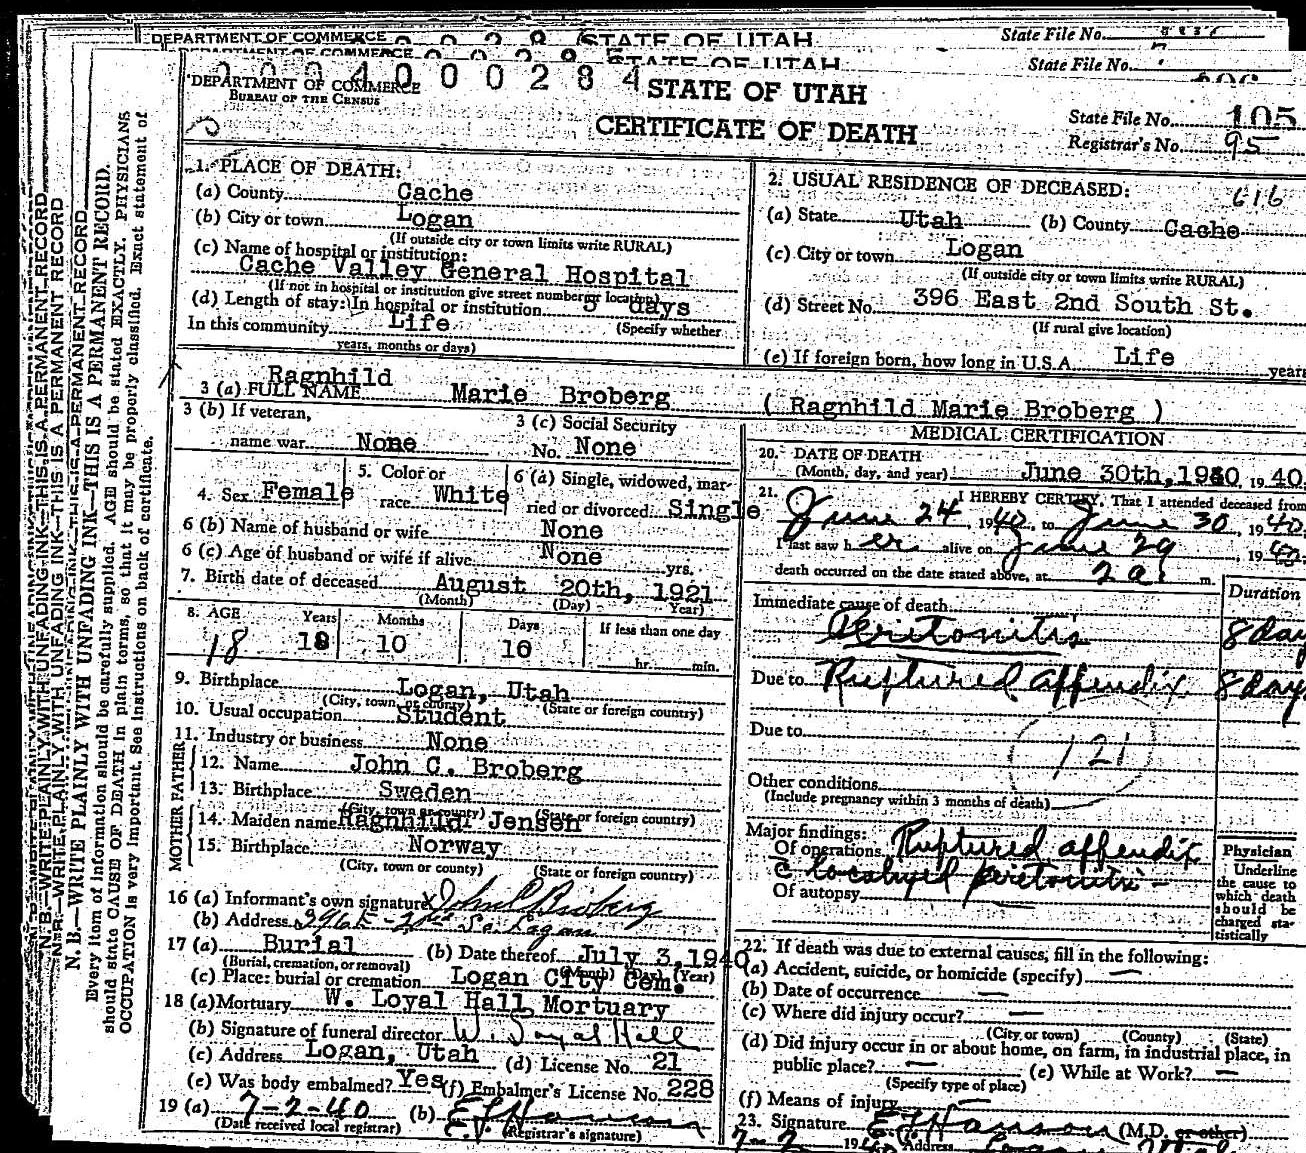 DEPARTMENT OF COMMERCE STATE OF UTAH State File No.
DEPARTMENT OF COMMERCE STATE OF UTAH State File No.
0 0 4 0 0 0 2 8 4
DEPARTMENT OF COMMERCE
BUREAU OF THE CENSUS
STATE OF UTAH
CERTIFICATE OF DEATH
State File No. 105
Registrar's No. 95
N. B.—WRITE PLAINLY WITH UNFADING INK—THIS IS A PERMANENT RECORD
N. B.—WRITE PLAINLY WITH UNFADING INK—THIS IS A PERMANENT RECORD
N. B.—WRITE PLAINLY WITH UNFADING INK—THIS IS A PERMANENT RECORD.
Every item of information should be carefully supplied. AGE should be stated EXACTLY. PHYSICIANS
should state CAUSE OF DEATH in plain terms, so that it may be properly classified. Exact statement of
OCCUPATION is very important. See instructions on back of certificate.
1. PLACE OF DEATH:
(a) County Cache
(b) City or town Logan
(If outside city or town limits write RURAL)
(c) Name of hospital or institution:
Cache Valley General Hospital
(If not in hospital or institution give street number or location)
(d) Length of stay: In hospital or institution 5 days
In this community Life (Specify whether
years, months or days)
2. USUAL RESIDENCE OF DECEASED: 616
(a) State Utah (b) County Cache
(c) City or town Logan
(If outside city or town limits write RURAL)
(d) Street No. 396 East 2nd South St.
(If rural give location)
(e) If foreign born, how long in U.S.A. Life years
Ragnhild
3 (a) FULL NAME Marie Broberg ( Ragnhild Marie Broberg )
3 (b) If veteran, 3 (c) Social Security
name war None No. None
4. Sex Female 5. Color or race White 6 (a) Single, widowed, married or divorced Single
6 (b) Name of husband or wife None
6 (c) Age of husband or wife if alive None yrs.
7. Birth date of deceased August 20th, 1921
(Month) (Day) (Year)
8. AGE Years Months Days If less than one day
18 18 10 10 hr. min.
9. Birthplace Logan, Utah
(City, town or county) (State or foreign country)
10. Usual occupation Student
11. Industry or business None
FATHER
12. Name John C. Broberg
13. Birthplace Sweden
(City, town or county) (State or foreign country)
MOTHER
14. Maiden name Ragnhild Jensen
15. Birthplace Norway
(City, town or county) (State or foreign country)
16 (a) Informant's own signature John C Broberg
(b) Address 396 E - 2nd So. Logan
17 (a) Burial (b) Date thereof July 3, 1940
(Burial, cremation, or removal) (Month) (Day) (Year)
(c) Place: burial or cremation Logan City Cem.
18 (a) Mortuary W. Loyal Hall Mortuary
(b) Signature of funeral director W. Loyal Hall
(c) Address Logan, Utah (d) License No. 21
(e) Was body embalmed? Yes (f) Embalmer's License No. 228
19 (a) 7-2-40 (b) E. L. Hanson
(Date received local registrar) (Registrar's signature)
MEDICAL CERTIFICATION
20. DATE OF DEATH
(Month, day, and year) June 30th, 1940, 19 40.
21. I HEREBY CERTIFY, That I attended deceased from
June 24, 1940, to June 30, 1940
I last saw h er alive on June 29 1940
death occurred on the date stated above, at 2 a. m.
Duration
Immediate cause of death
Peritonitis 8 day
Due to Ruptured appendix 8 days
Due to
121
Other conditions
(Include pregnancy within 3 months of death)
Major findings:
Of operations Ruptured appendix
c localized peritonitis -
Of autopsy
Physician
Underline
the cause to
which death
should be
charged sta-
tistically
22. If death was due to external causes, fill in the following:
(a) Accident, suicide, or homicide (specify) —
(b) Date of occurrence —
(c) Where did injury occur? —
(City or town) (County) (State)
(d) Did injury occur in or about home, on farm, in industrial place, in
public place? — (e) While at Work? —
(Specify type of place)
(f) Means of injury —
23. Signature E L Hanson (M.D. or other)
7-2 1940 Address Logan Utah